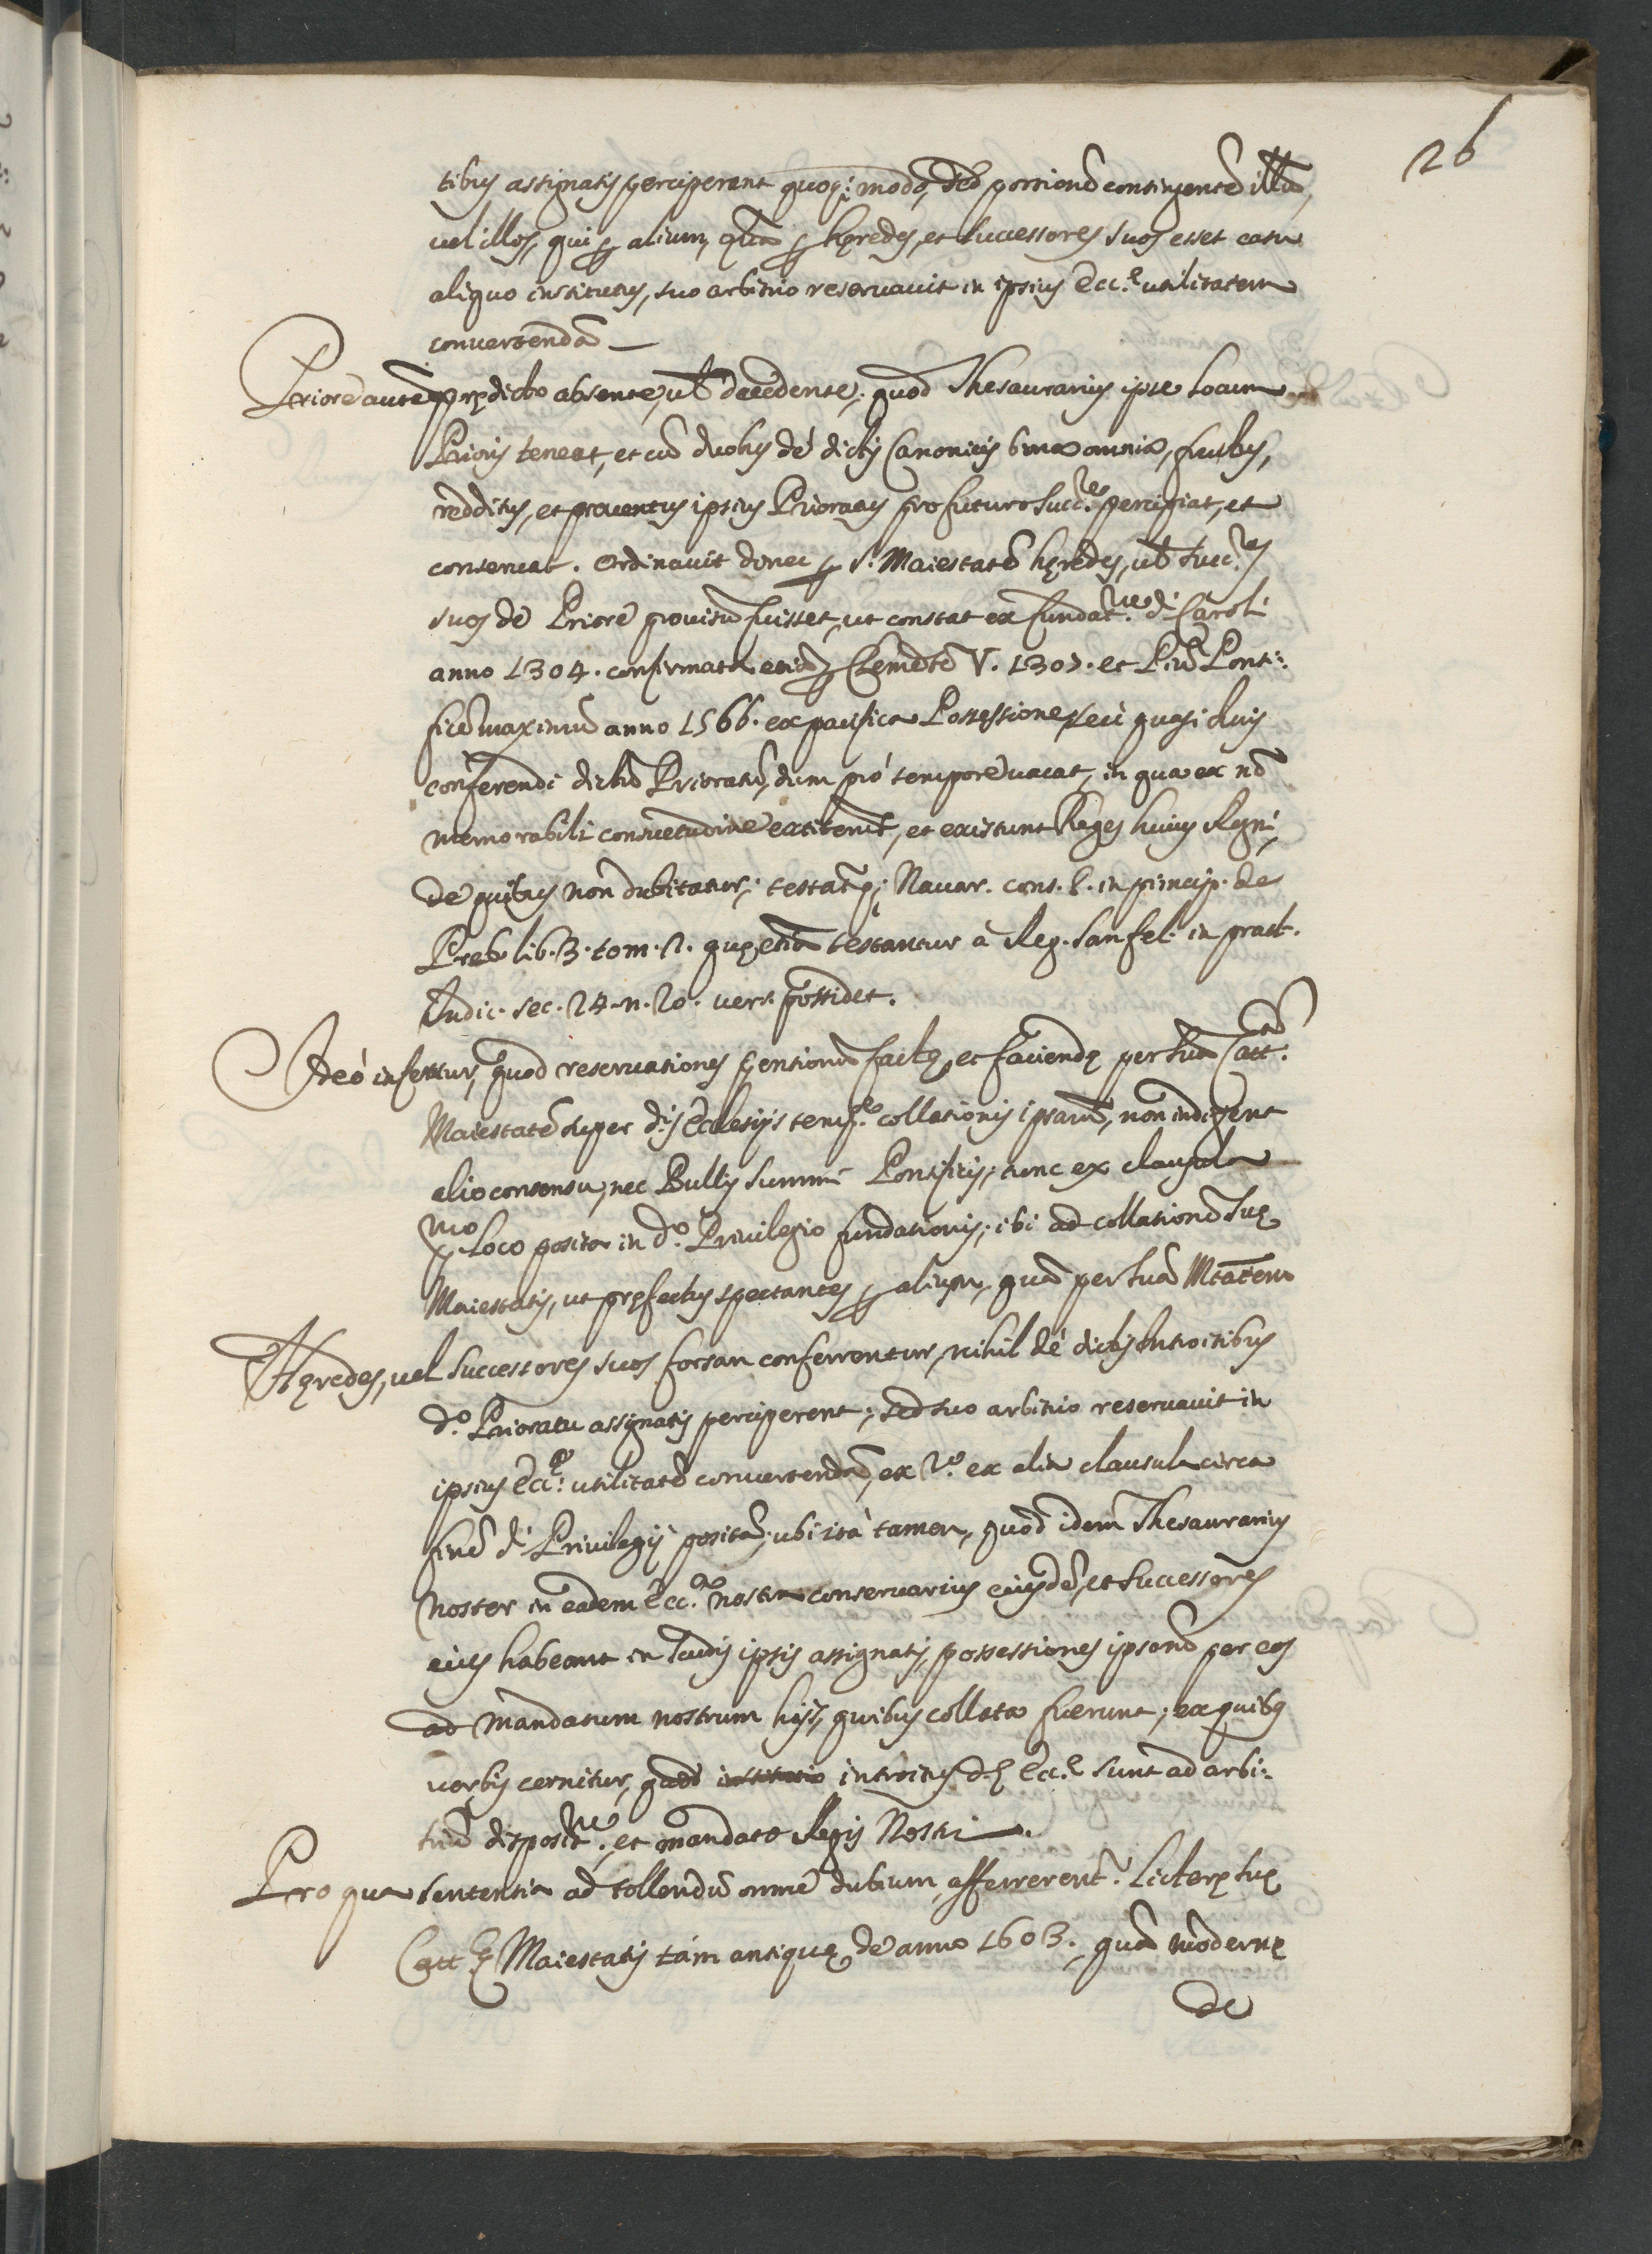 26
tibus assignatis perciperent quoq; modo, sed portionẽ contingentẽ illũ,
uel illos, qui ꝑ alium, quã ꝑ hęredes, et successores suos esset casu
aliquo institutus, suo arbitrio reseruauit in ipsius Ecc.ę utilitatem
conuertendã —
Priore autẽ prędicto absente, ul̃ decedente, quod Thesaurarius ipse locum
Prioris teneat, et cũ duobus de dictis Canonicis bona omnia, fructus,
redditus, et prouentus ipsius Prioratus pro futuro succ.re percipiat, et
conseruat. Ordinauit donec ꝑ S. Maiestatẽ hęredes, ul̃ succ.es
suos de Priore prouisũ fuisset, ut constat ex fundat.ne d.i Caroli
anno 1304. confirmata etiã ꝑ Clemẽtẽ V. 1307. et Piũ Ponti:
ficẽ maximũ anno 1566. ex pacifica Possessione, seù quasi Iuris
conferendi dictũ Prioratũ, dum pró tempore uacat, in qua ex nõ
memorabili consuetudine extiterũt, et existunt Reges huius Regni,
de quibus non dubitatur; testatq; Nauar. cons. 8. in princip. de
Preb. lib. 3. tom. 2. quę etiã testantur à Reg. Sanfel. in pract.
Iudic. sec. 24. n. 20. uers. possidet.
Adeò infertur, quod reseruationes pensionũ factę, et faciendę per suã Catt.cã
Maiestatẽ super d.is Ecclesijs temp.e collationis ipsarũ, non indigent
alio consensu, nec Bullis Summi Pontificis; tunc ex clausula
p.mo loco posita in d.o Priuilegio fundationis; ibi ad collationẽ suę
Maiestatis, ut pręfectus spectantes ꝑ alium, quã per suã Mtãtem
Hęredes, uel successores suos forsan conferrentur, nihil dé dictis Introitibus
d.o Prioratu assignatis perciperent; sed suo arbitrio reseruauit in
ipsius Ecc.ę utilitatẽ conuertendã, et 2.o ex alia clausula circa
finẽ d.i Priuilegij posita; ubi ità tamen, quod idem Thesaurarius
noster in eadem Ecc.a nostra conseruarius eiusdẽ, et successores
eius habeant in feudis ipsis assignatis, possessiones ipsorũ per eos
ad mandatum nostrum hijs, quibus collata fuerunt; ex quibus
uerbis cernitur, quod introitus d.ę Ecc.ę sunt ad arbi:
triũ disposit.ne, et mandato Regis Nostri.
Pro qua sententia ad tollendũ omne dubium, afferrerent.r Licterę suę
Catt.cę Maiestatis tám antiquę de anno 1603. quã modernę
de